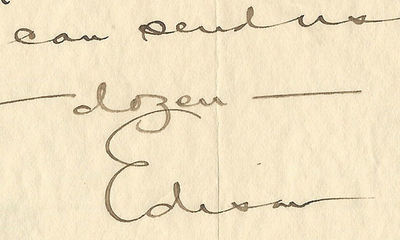 can send us
— dozen —
Edison